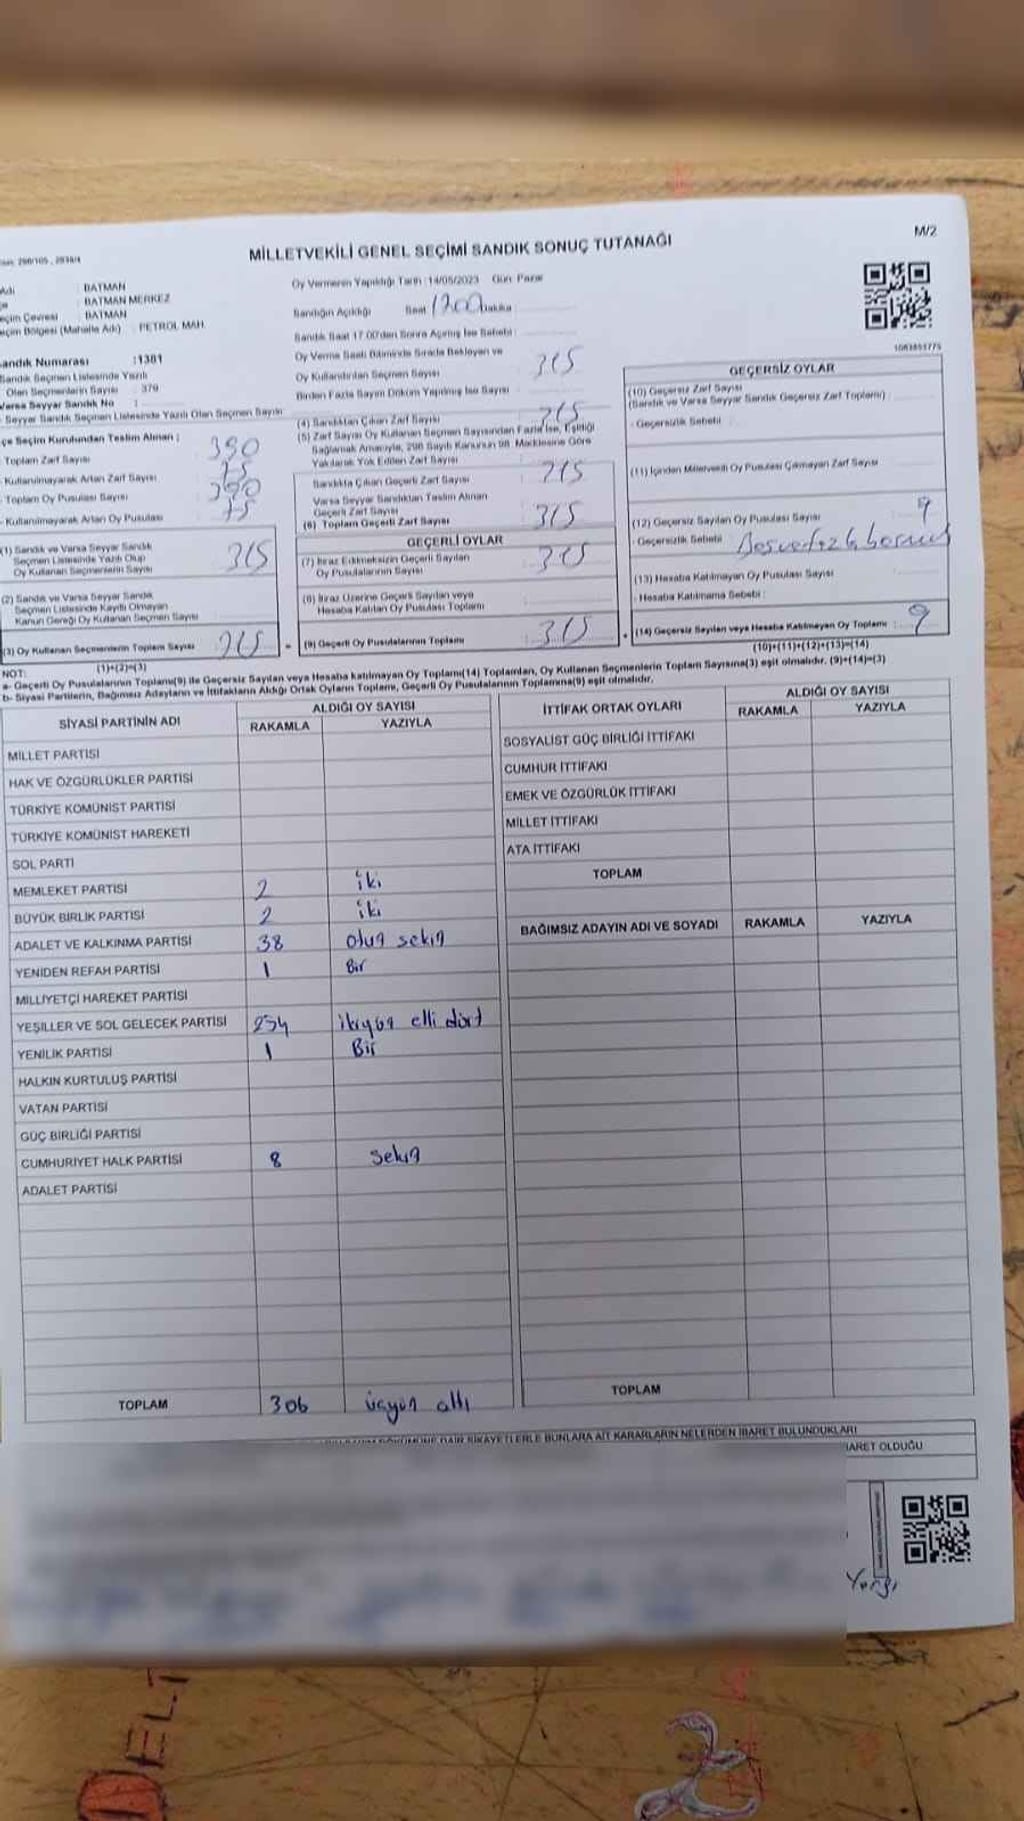 M/2
MİLLETVEKİLİ GENEL SEÇİMİ SANDIK SONUÇ TUTANAĞI
BATMAN
BATMAN MERKEZ
eçim Çevresi : BATMAN
eçim Bölgesi (Mahalle Adı) : PETROL MAH.
andık Numarası :1381
Sandık Seçmen Listesinde Yazılı
Olan Seçmenlerin Sayısı : 379
Varsa Seyyar Sandık No :
Seyyar Sandık Seçmen Listesinde Yazılı Olan Seçmen Sayısı
çe Seçim Kurundan Teslim Alınan ;
Toplam Zarf Sayısı 390
Kullanılmayarak Artan Zarf Sayısı 75
Toplam Oy Pusulası Sayısı 390
Kullanılmayarak Artan Oy Pusulası 75
(1) Sandık ve Varsa Seyyar Sandık
Seçmen Listesinde Yazılı Olup
Oy Kullanan Seçmenlerin Sayısı 315
(2) Sandık ve Varsa Seyyar Sandık
Seçmen Listesinde Kayıtlı Olmayan
Kanun Gereği Oy Kullanan Seçmen Sayısı
(3) Oy Kullanan Seçmenlerin Toplam Sayısı 315
(1)+(2)=(3)
Oy Vermenin Yapıldığı Tarih :14/05/2023 Gün: Pazar
Sandığın Açıldığı Saat 1700 Dakika
Sandık Saat 17.00'den Sonra Açılmış İse Sebebi :
Oy Verme Saati Bitiminde Sırada Bekleyen ve
Oy Kullandırılan Seçmen Sayısı 315
Birden Fazla Sayım Döküm Yapılmış İse Sayısı
(4) Sandıktan Çıkan Zarf Sayısı 315
(5) Zarf Sayısı Oy Kullanan Seçmen Sayısından Fazla İse, Eşitliği
Sağlamak Amacıyla, 298 Sayılı Kanunun 98. Maddesine Göre
Yakılarak Yok Edilen Zarf Sayısı
Sandıkta Çıkan Geçerli Zarf Sayısı 315
Varsa Seyyar Sandıktan Teslim Alınan
Geçerli Zarf Sayısı
(6) Toplam Geçerli Zarf Sayısı 315
GEÇERLİ OYLAR
(7) İtiraz Edilmeksizin Geçerli Sayılan
Oy Pusulalarının Sayısı 315
(8) İtiraz Üzerine Geçerli Sayılan veya
Hesaba Katılan Oy Pusulası Toplamı
(9) Geçerli Oy Pusulalarının Toplamı 315
GEÇERSİZ OYLAR
(10) Geçersiz Zarf Sayısı
(Sandık ve Varsa Seyyar Sandık Geçersiz Zarf Toplamı) :
- Geçersizlik Sebebi :
(11) İçinden Milletvekili Oy Pusulası Çıkmayan Zarf Sayısı
(12) Geçersiz Sayılan Oy Pusulası Sayısı 9
- Geçersizlik Sebebi :
(13) Hesaba Katılmayan Oy Pusulası Sayısı
- Hesaba Katılmama Sebebi :
(14) Geçersiz Sayılan veya Hesaba Katılmayan Oy Toplamı : 9
(10)+(11)+(12)+(13)=(14)
NOT:
a- Geçerli Oy Pusulalarının Toplamı(9) ile Geçersiz Sayılan veya Hesaba Katılmayan Oy Toplamı(14) Toplamları, Oy Kullanan Seçmenlerin Toplam Sayısına(3) eşit olmalıdır. (9)+(14)=(3)
b- Siyasi Partilerin, Bağımsız Adayların ve İttifakların Aldığı Ortak Oyların Toplamı, Geçerli Oy Pusulalarının Toplamına(9) eşit olmalıdır.
SİYASİ PARTİNİN ADI
ALDIĞI OY SAYISI
RAKAMLA YAZIYLA
MİLLET PARTİSİ
HAK VE ÖZGÜRLÜKLER PARTİSİ
TÜRKİYE KOMÜNİST PARTİSİ
TÜRKİYE KOMÜNİST HAREKETİ
SOL PARTİ
MEMLEKET PARTİSİ 2 iki
BÜYÜK BİRLİK PARTİSİ 2 iki
ADALET VE KALKINMA PARTİSİ 38 otuz sekiz
YENİDEN REFAH PARTİSİ 1 Bir
MİLLİYETÇİ HAREKET PARTİSİ
YEŞİLLER VE SOL GELECEK PARTİSİ 254 ikiyüz elli dört
YENİLİK PARTİSİ 1 Bir
HALKIN KURTULUŞ PARTİSİ
VATAN PARTİSİ
GÜÇ BİRLİĞİ PARTİSİ
CUMHURİYET HALK PARTİSİ 8 sekiz
ADALET PARTİSİ
TOPLAM 306 üçyüz altı
İTTİFAK ORTAK OYLARI
ALDIĞI OY SAYISI
RAKAMLA YAZIYLA
SOSYALİST GÜÇ BİRLİĞİ İTTİFAKI
CUMHUR İTTİFAKI
EMEK VE ÖZGÜRLÜK İTTİFAKI
MİLLET İTTİFAKI
ATA İTTİFAKI
TOPLAM
BAĞIMSIZ ADAYIN ADI VE SOYADI RAKAMLA YAZIYLA
TOPLAM
ŞİKAYETLERLE BUNLARA AİT KARARLARIN NELERDEN İBARET BULUNDUKLARI
İBARET OLDUĞU
ELT
2